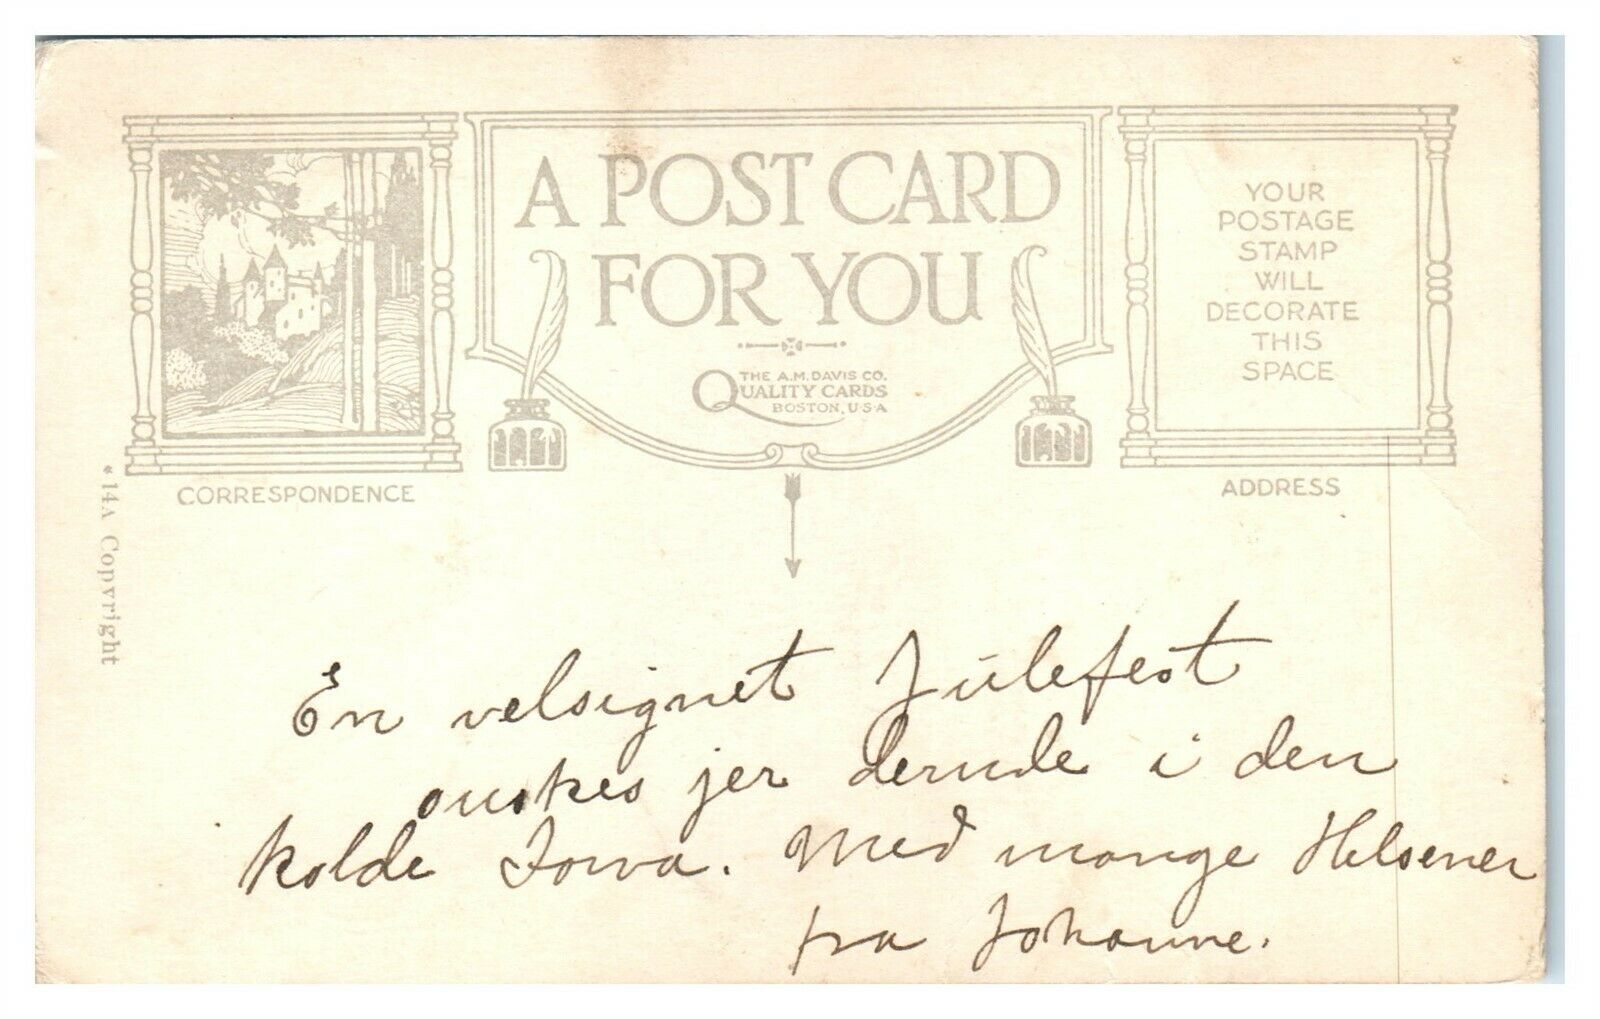 A POST CARD
FOR YOU
THE A.M. DAVIS CO.
QUALITY CARDS
BOSTON, U·S·A
YOUR
POSTAGE
STAMP
WILL
DECORATE
THIS
SPACE
CORRESPONDENCE
ADDRESS
* 14A Copyright
En velsignet Julefest
onskes jer derude i den
kolde Iowa. Med mange Hilsener
fra Johanne.